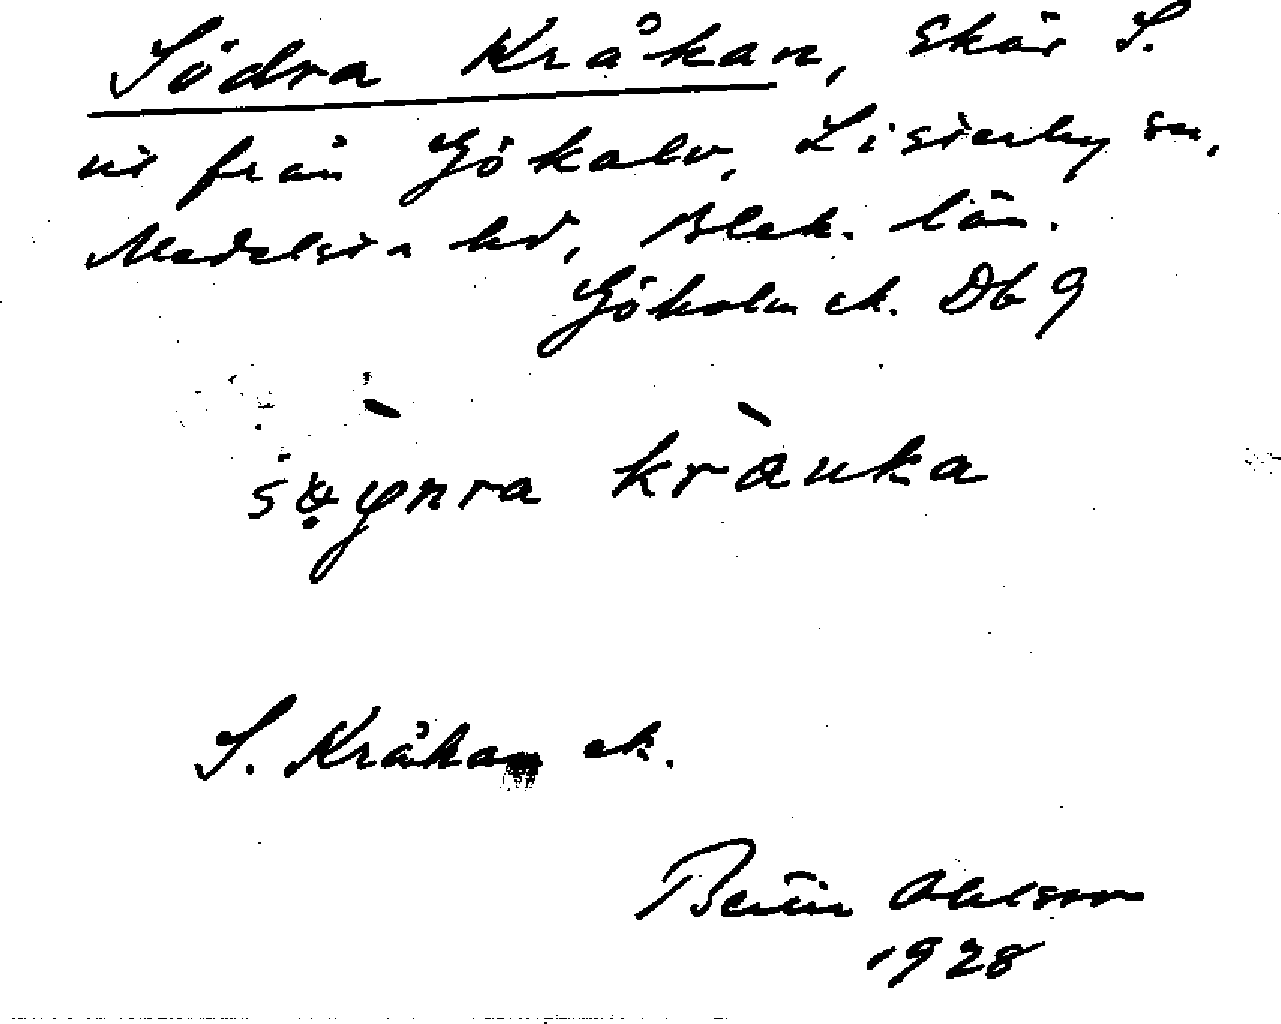 Södra Kråkan, Skär S.
ut från Gökalv, Listerby sn,
Medelsta hd, Blek. län.
Gökalv ek. Db 9
kràuka
S. Kråkan ek.
Bertin Ohlsson
1928